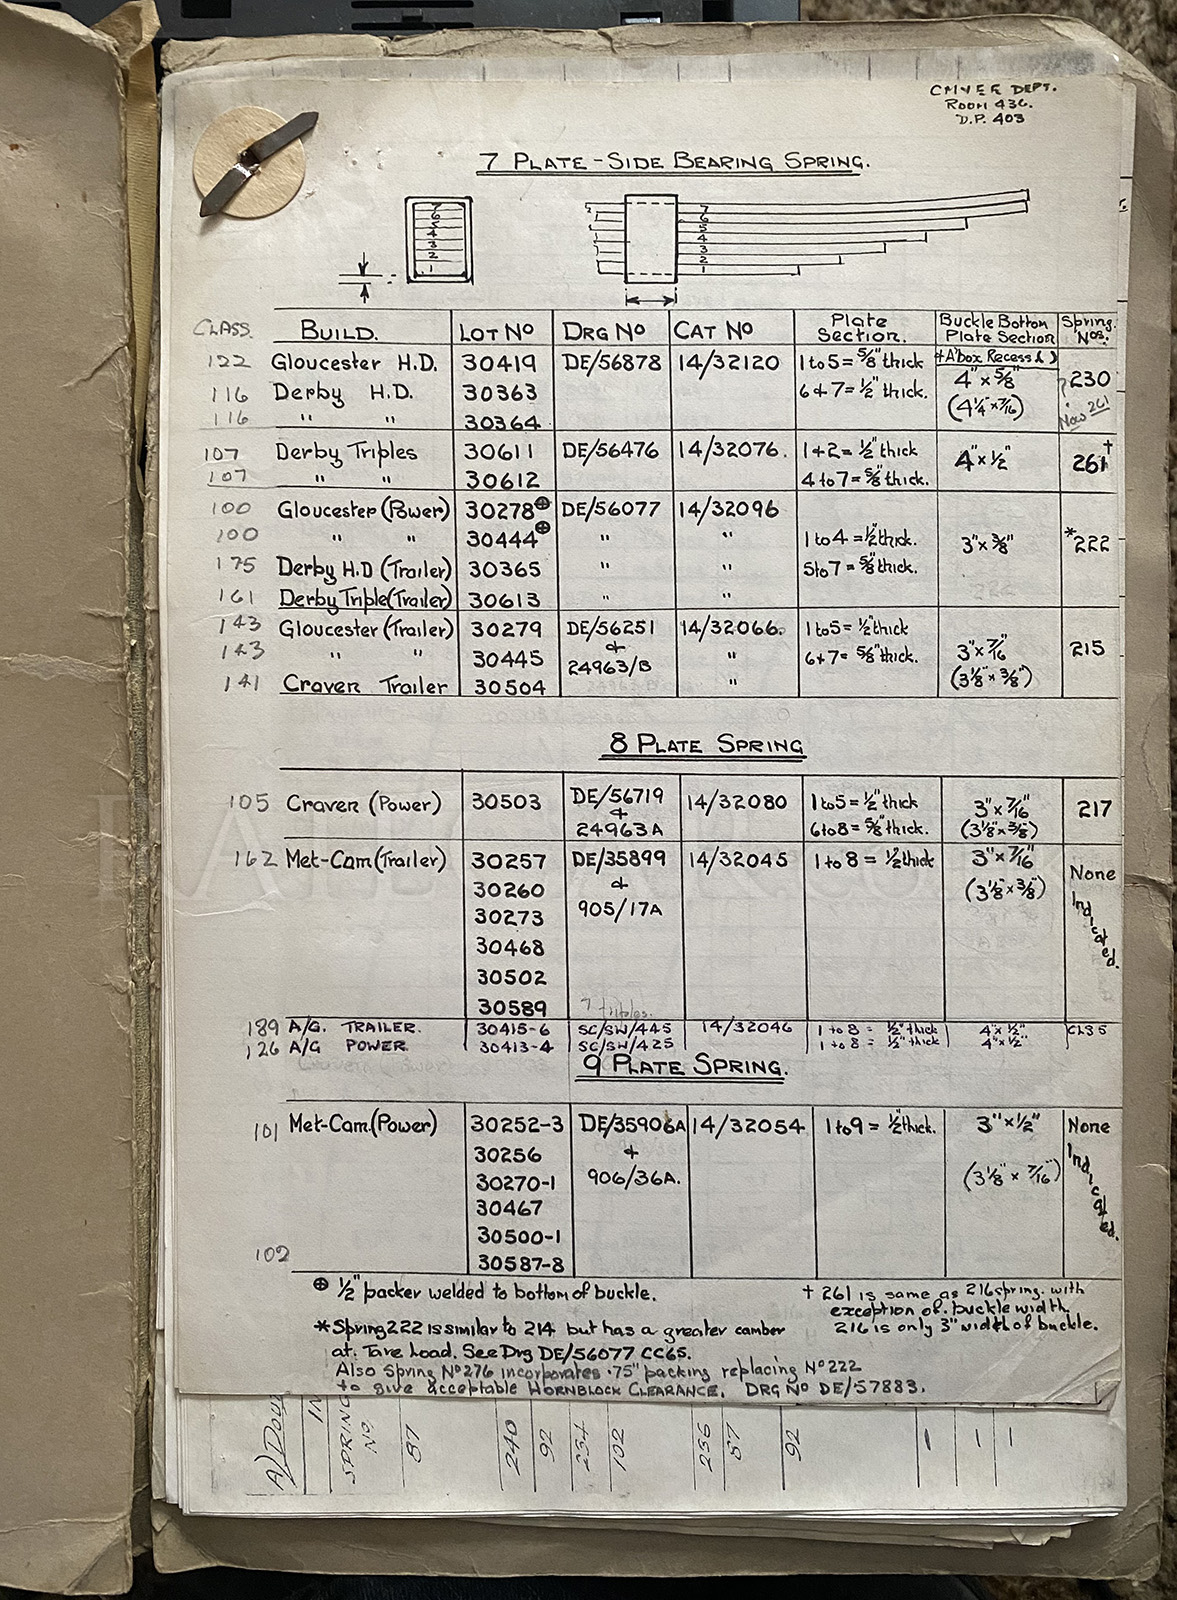 CMVEE DEPT.
ROOM 436.
D.P. 403
7 PLATE - SIDE BEARING SPRING.
7
6
5
4
3
2
1
7
6
5
4
3
2
1
CLASS. BUILD. LOT No DRG No CAT No Plate Section. Buckle Bottom Plate Section Spring Nos.
+ A'box Recess ( )
122 Gloucester H.D. 30419 DE/56878 14/32120 1 to 5 = 5/8" thick 4" x 5/8" 230
116 Derby H.D. 30363 6 + 7 = 1/2" thick. (4 1/4" x 7/16")
116 " " 30364 Now 261
107 Derby Triples 30611 DE/56476 14/32076. 1 + 2 = 1/2" thick 4" x 1/2" 261†
107 " " 30612 4 to 7 = 5/8" thick.
100 Gloucester (Power) 30278⊕ DE/56077 14/32096
100 " " 30444⊕ " " 1 to 4 = 1/2" thick. 3" x 3/8" *222
175 Derby H.D (Trailer) 30365 " " 5 to 7 = 5/8" thick.
161 Derby Triple (Trailer) 30613 " "
143 Gloucester (Trailer) 30279 DE/56251 14/32066. 1 to 5 = 1/2" thick
143 " " 30445 & 24963/B " 6 + 7 = 5/8" thick. 3" x 7/16" 215
141 Craven Trailer 30504 " (3 1/8" x 3/8")
8 PLATE SPRING
105 Craven (Power) 30503 DE/56719 14/32080 1 to 5 = 1/2" thick 3" x 7/16" 217
& 24963A 6 to 8 = 5/8" thick. (3 1/8" x 3/8")
162 Met-Cam (Trailer) 30257 DE/35899 14/32045 1 to 8 = 1/2" thick 3" x 7/16" None Indicated.
30260 & (3 1/8" x 3/8")
30273 905/17A
30468
30502
30589
189 A/G. TRAILER. 30415-6 SC/SW/445 14/32046 1 to 8 = 1/2" thick 4" x 1/2" CL35
126 A/G POWER 30413-4 SC/SW/425 1 to 8 = 1/2" thick 4" x 1/2"
9 PLATE SPRING.
101 Met-Cam. (Power) 30252-3 DE/35906A 14/32054 1 to 9 = 1/2" thick. 3" x 1/2" None Indicated.
30256 &
30270-1 906/36A. (3 1/8" x 7/16")
30467
30500-1
102 30587-8
⊕ 1/2" packer welded to bottom of buckle.
† 261 is same as 216 spring. with
exception of. buckle width.
216 is only 3" width of buckle.
* Spring 222 is similar to 214 but has a greater camber
at. Tare Load. See Drg DE/56077 CC65.
Also Spring No 276 incorporates .75" packing replacing No 222
to give acceptable HORNBLOCK CLEARANCE. DRG No DE/57883.
SPRING No
87
240
92
234
102
236
87
92